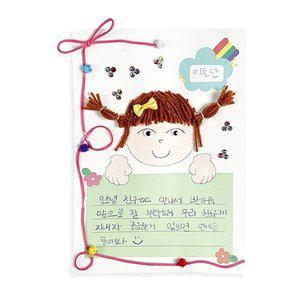 이도단
안녕 친구야 만나서 반가워
앞으로 잘 부탁하고 우리 친하게
지내자 궁금한게 있으면 언제든
물어봐